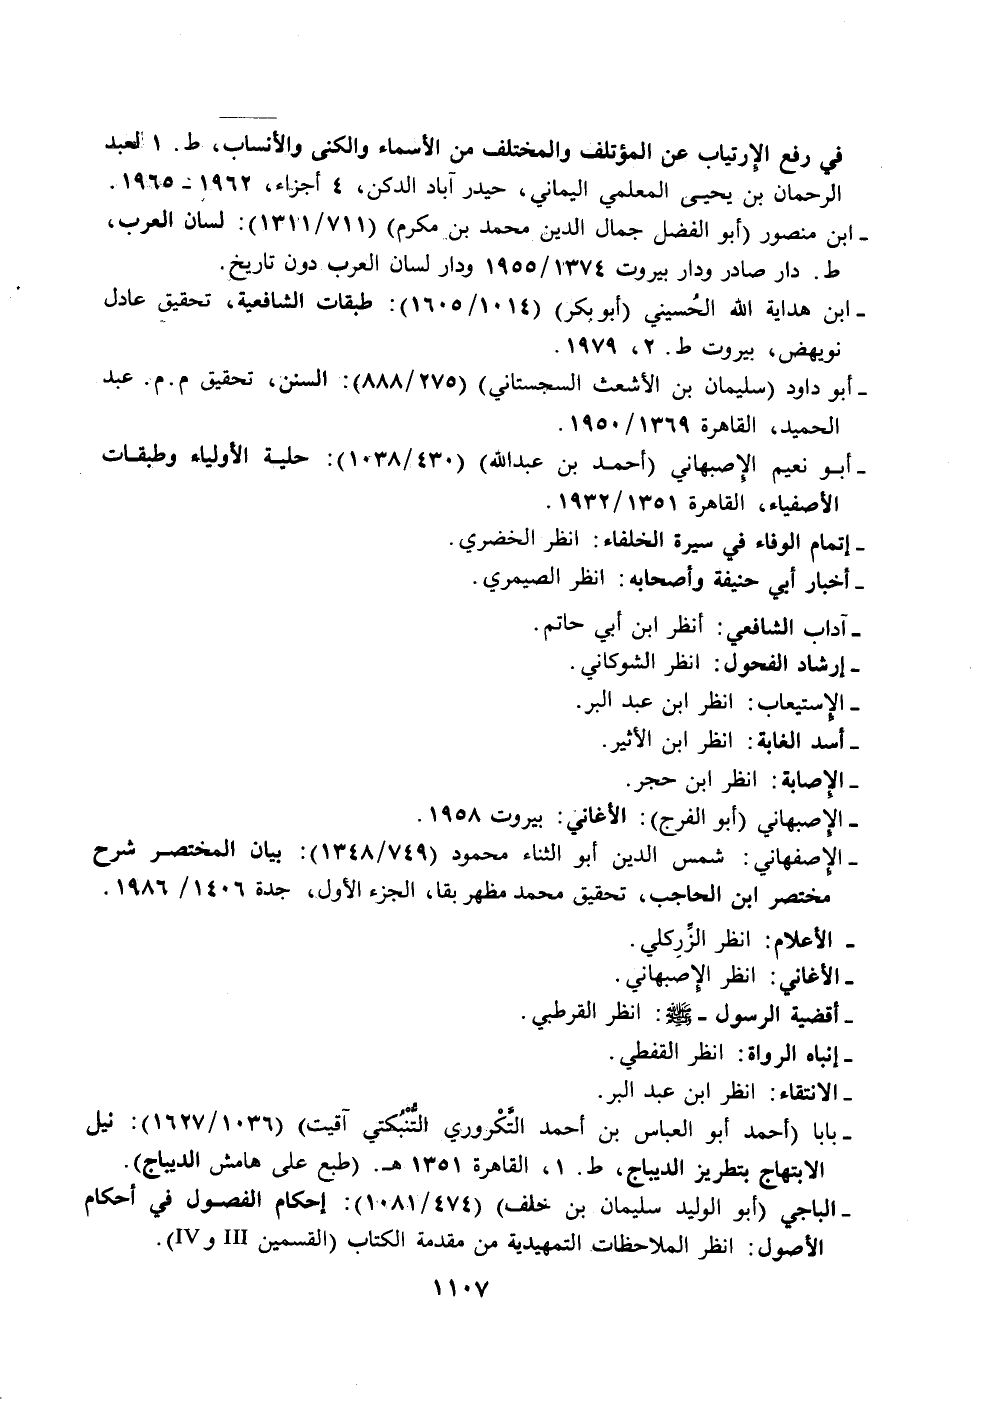 في رفع الإرتياب عن المؤتلف والمختلف من الأسماء والكنى والأنساب، ط. ١ لعبد
الرحمان بن يحيى المعلمي اليماني، حيدر آباد الدكن، ٤ أجزاء، ١٩٦٢ - ١٩٦٥.
- ابن منصور (أبو الفضل جمال الدين محمد بن مكرم) (١٣١١/٧١١): لسان العرب،
ط. دار صادر ودار بيروت ١٩٥٥/١٣٧٤ ودار لسان العرب دون تاريخ.
- ابن هداية الله الحُسيني (أبو بكر) (١٦٠٥/١٠١٤): طبقات الشافعية، تحقيق عادل
نويهض، بيروت ط. ٢، ١٩٧٩.
- أبو داود (سليمان بن الأشعث السجستاني) (٨٨٨/٢٧٥): السنن، تحقيق م.م. عبد
الحميد، القاهرة ١٩٥٠/١٣٦٩.
- أبو نعيم الإصبهاني (أحمد بن عبدالله) (١٠٣٨/٤٣٠): حلية الأولياء وطبقات
الأصفياء، القاهرة ١٩٣٢/١٣٥١.
- إتمام الوفاء في سيرة الخلفاء: انظر الخضري.
- أخبار أبي حنيفة وأصحابه: انظر الصيمري.
- آداب الشافعي: أنظر ابن أبي حاتم.
- إرشاد الفحول: انظر الشوكاني.
- الإستيعاب: انظر ابن عبد البر.
- أسد الغابة: انظر ابن الأثير.
- الإصابة: انظر ابن حجر.
- الإصبهاني (أبو الفرج): الأغاني: بيروت ١٩٥٨.
- الإصفهاني: شمس الدين أبو الثناء محمود (١٣٤٨/٧٤٩): بيان المختصر شرح
مختصر ابن الحاجب، تحقيق محمد مظهر بقا، الجزء الأول، جدة ١٤٠٦/ ١٩٨٦.
- الأعلام: انظر الزِّركلي.
- الأغاني: انظر الإصبهاني.
- أقضية الرسول - ﷺ: انظر القرطبي.
- إنباه الرواة: انظر القفطي.
- الانتقاء: انظر ابن عبد البر.
- بابا (أحمد أبو العباس بن أحمد التَّكْروري التُّنْبُكتي آقيت) (١٦٢٧/١٠٣٦): نيل
الابتهاج بتطريز الديباج، ط. ١، القاهرة ١٣٥١ هـ. (طبع على هامش الديباج).
- الباجي (أبو الوليد سليمان بن خلف) (١٠٨١/٤٧٤): إحكام الفصول في أحكام
الأصول: انظر الملاحظات التمهيدية من مقدمة الكتاب (القسمين III و IV).
١١٠٧